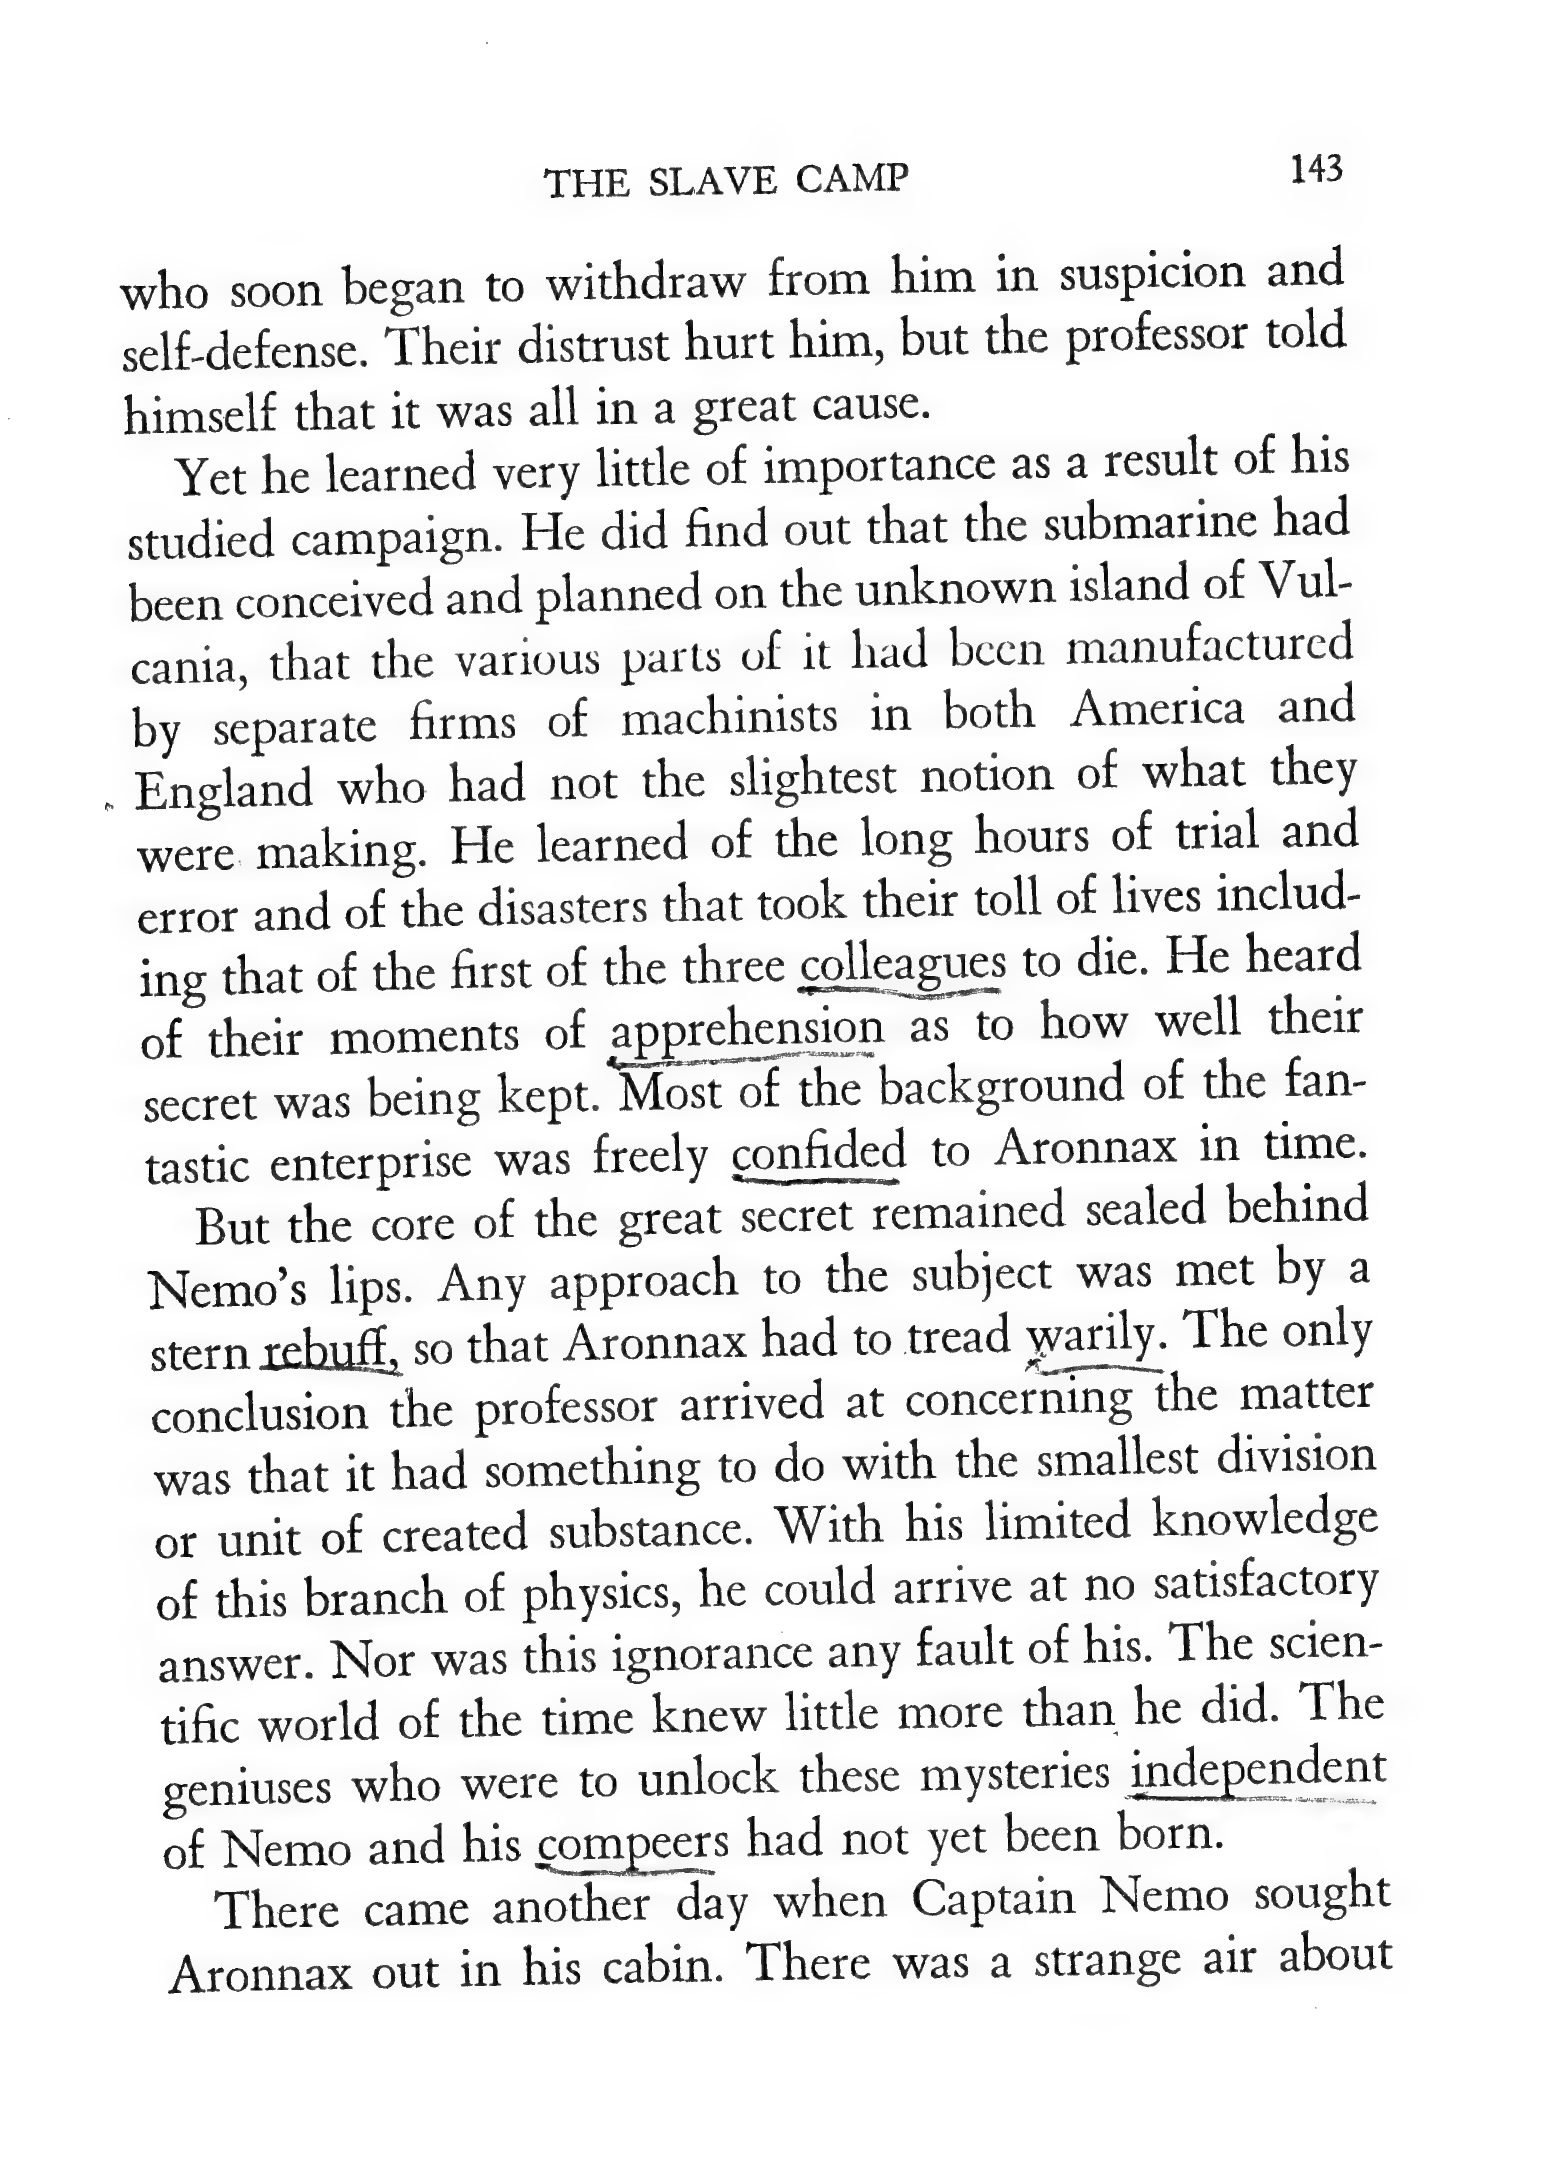 THE SLAVE CAMP 143
who soon began to withdraw from him in suspicion and
self-defense. Their distrust hurt him, but the professor told
himself that it was all in a great cause.
Yet he learned very little of importance as a result of his
studied campaign. He did find out that the submarine had
been conceived and planned on the unknown island of Vul-
cania, that the various parts of it had been manufactured
by separate firms of machinists in both America and
England who had not the slightest notion of what they
were making. He learned of the long hours of trial and
error and of the disasters that took their toll of lives includ-
ing that of the first of the three colleagues to die. He heard
of their moments of apprehension as to how well their
secret was being kept. Most of the background of the fan-
tastic enterprise was freely confided to Aronnax in time.
But the core of the great secret remained sealed behind
Nemo's lips. Any approach to the subject was met by a
stern rebuff, so that Aronnax had to tread warily. The only
conclusion the professor arrived at concerning the matter
was that it had something to do with the smallest division
or unit of created substance. With his limited knowledge
of this branch of physics, he could arrive at no satisfactory
answer. Nor was this ignorance any fault of his. The scien-
tific world of the time knew little more than he did. The
geniuses who were to unlock these mysteries independent
of Nemo and his compeers had not yet been born.
There came another day when Captain Nemo sought
Aronnax out in his cabin. There was a strange air about